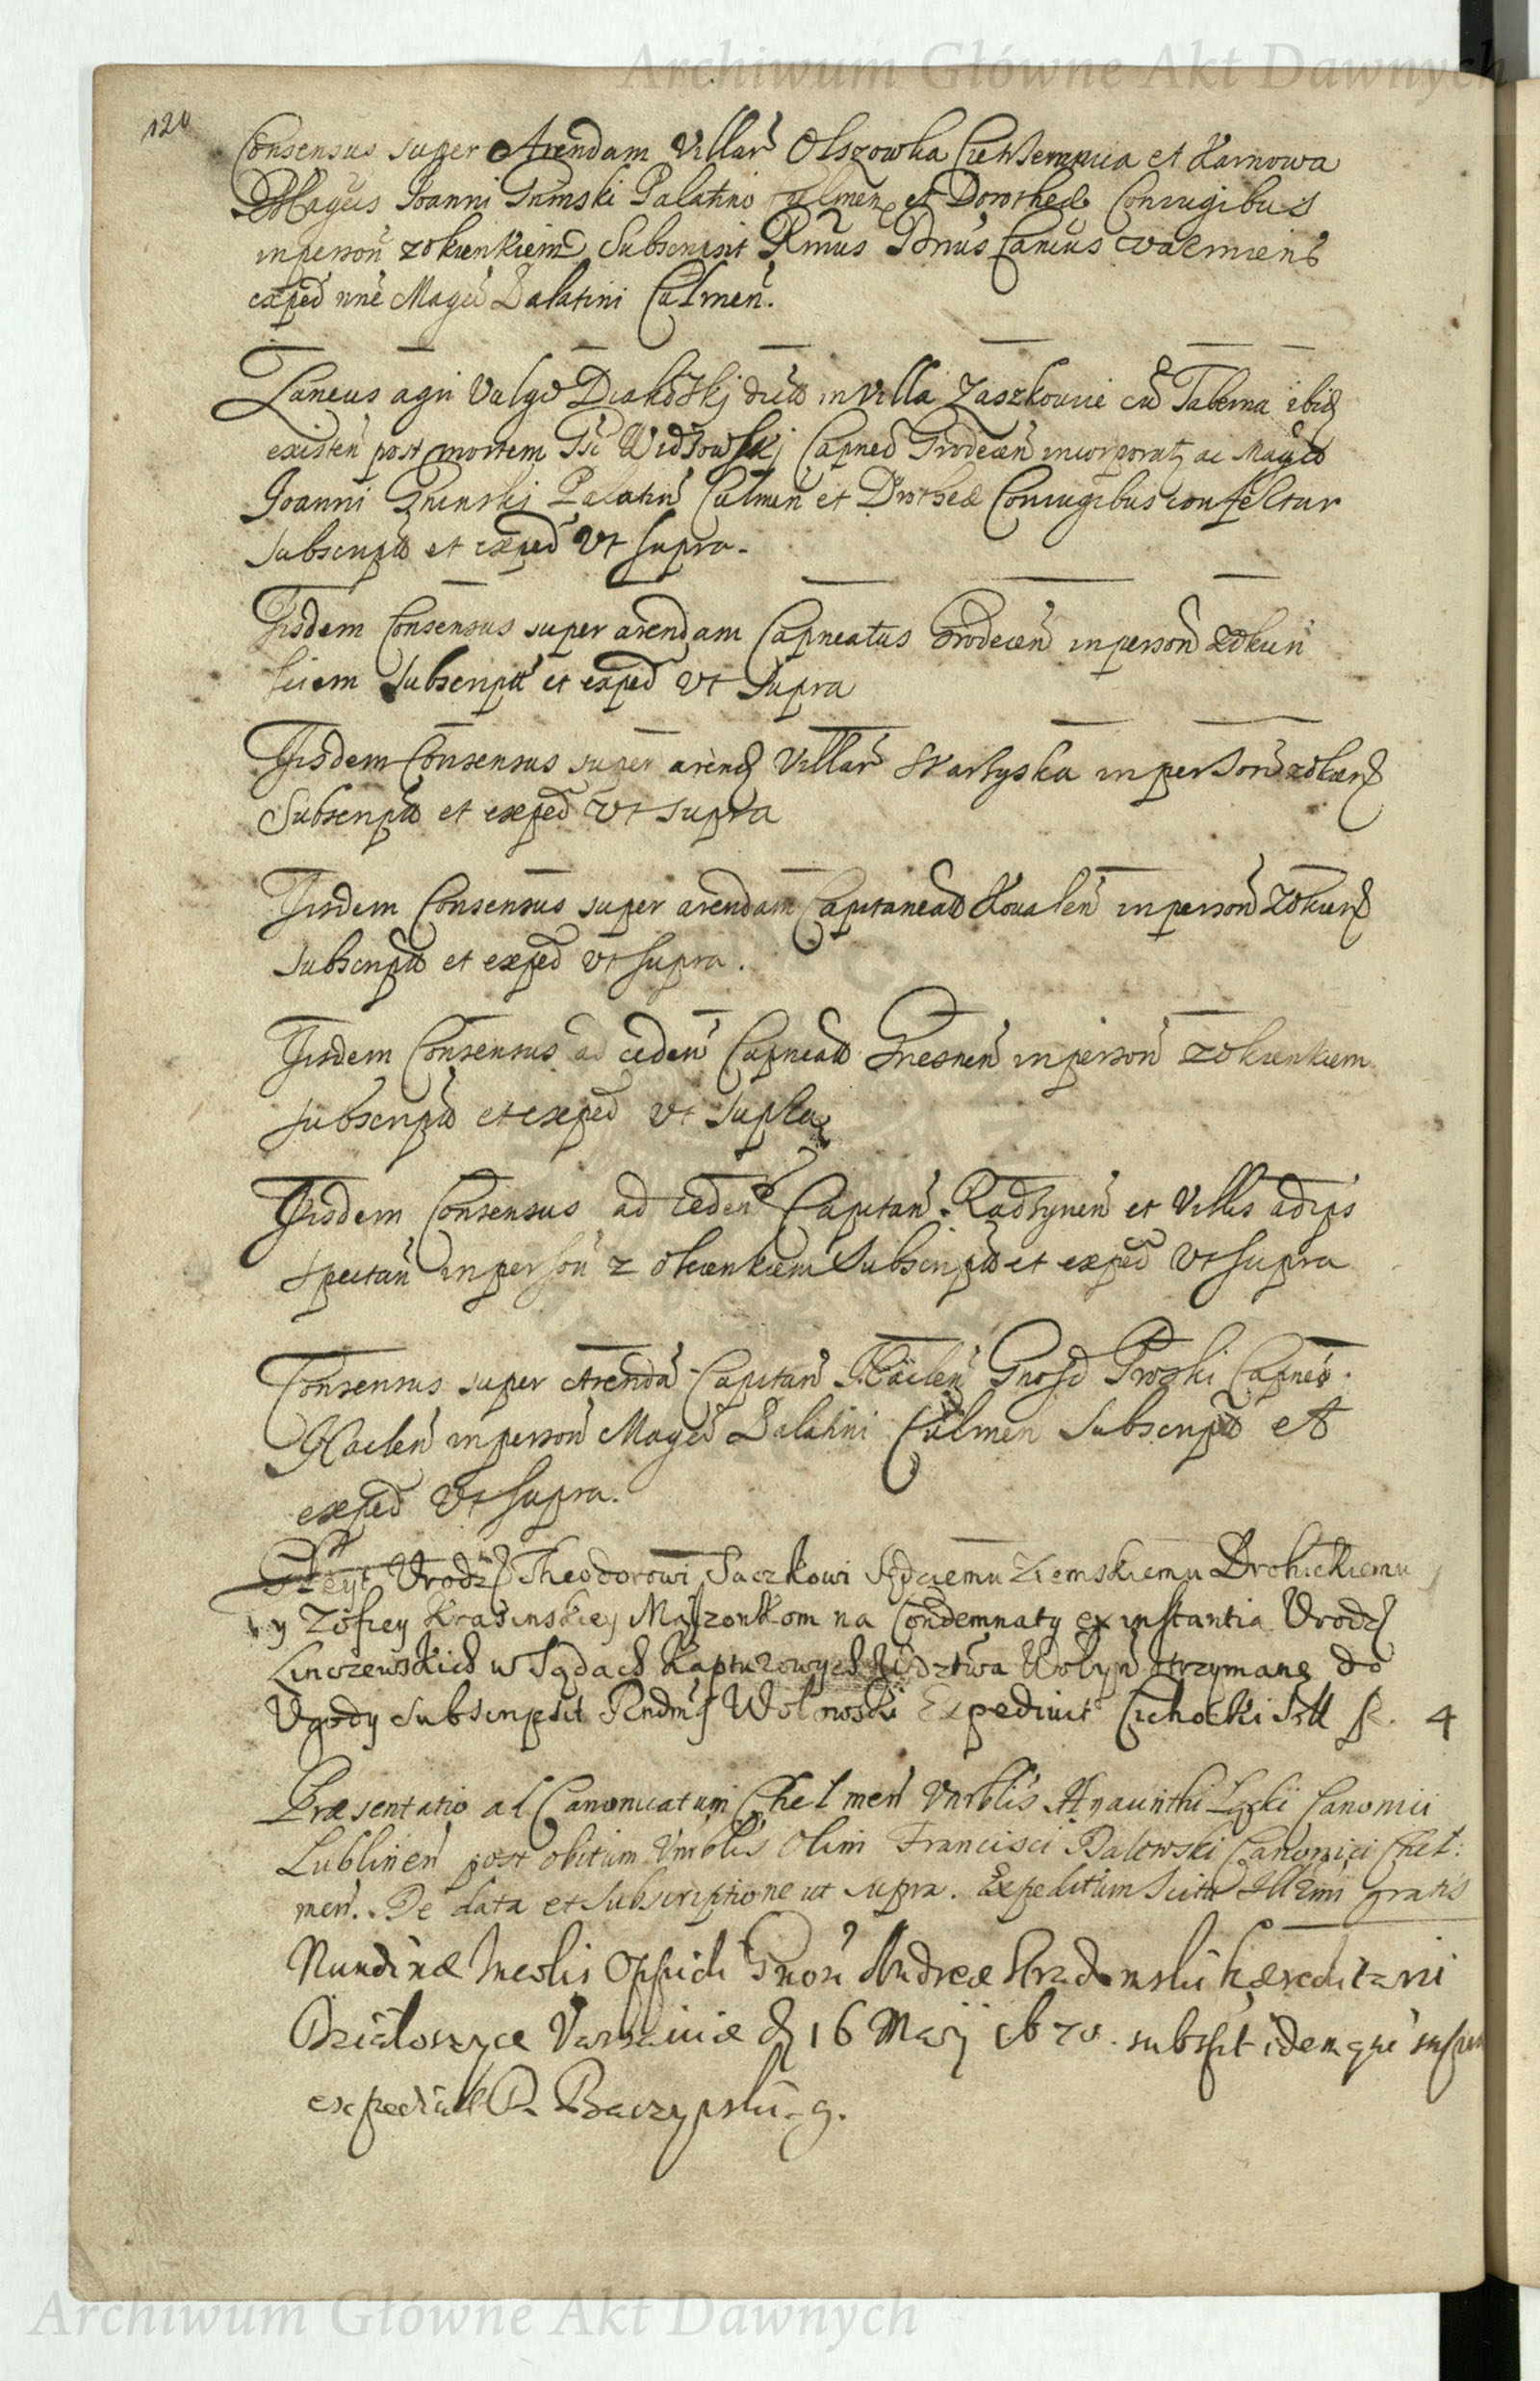 Archiwum Główne Akt Dawnych
120
Consensus super Arendam Villarũ Olszowka et Karnowa
Magcis Joanni Gninski Palatino Culmen et Dorotheæ Coniugibus
in persoñ zokienkiem Subscripsit Rmus Dnus Cancus
exped nñe Magci Palatini Culmeñ.
Laneus agri Vulgo dicto in villa Zaszkowie cũ Taberna ibid
existeñ post mortem Gsi Capneo Grodeceñ incorporat ac Magco
Joanni Gninski Palatiñ Culmeñ et Dorotheæ Coniugibus confertur
subscripto et exped Vt supra.
Iisdem Consensus super arendam Capneatus Grodeceñ in persoñ zokien
kiem subscript et exped Vt supra
Iisdem Consensus super arend Villarũ Skarlyska in persoñ zokien
Subscripto et exped Vt supra
Iisdem Consensus super arendam Capitaneato Kovaleñ in persoñ zokien
subscripto et exped Vt supra.
Iisdem Consensus ad cedeñ Capneato Gnesneñ in persoñ zokienkiem
subscripto et exped Vt supra
Iisdem Consensus ad cedeñ Capitañ Radzyneñ et Villis ad ips
spectañ in persoñ z okienkiem Subscripto et exped Vt supra
Consensus super Arendã Capitañ Gnoso Groski Capneo.
in persoñ Magci Palatini Culmen Subscripto et
exped Vt supra.
Gleyt Urodz Theodorowi Saczkowi Sędziemu Ziemskiemu Drohickiemu
y Zofiey Krasinskiey Małzonkom na Condemnaty ex instantia Urodz
Linczewskich w Sądach Kapturowych Wdztwa Wołyn otrzymane do
Ugody subscripsit Rndmg Wolowski Expedivit Cichocki Sctt fl. 4
Præsentatio ad Canonicatum Chelmeñ Vnrblis Hyacinthi Łącki Canonici
Lublineñ post obitum Vnrblis olim Francisci Balowski Canonici Cheł:
meñ. De data et subscriptione ut supra. Expeditum Scitu Illmi gratis
Nundinæ Incolis Oppidi Gnosi Andreæ hæreditarii
Działoszyce Varsaviæ d 16 Maij 1670. subssit idem qui supra
expedivit P. Baczynski. g.
Archiwum Główne Akt Dawnych